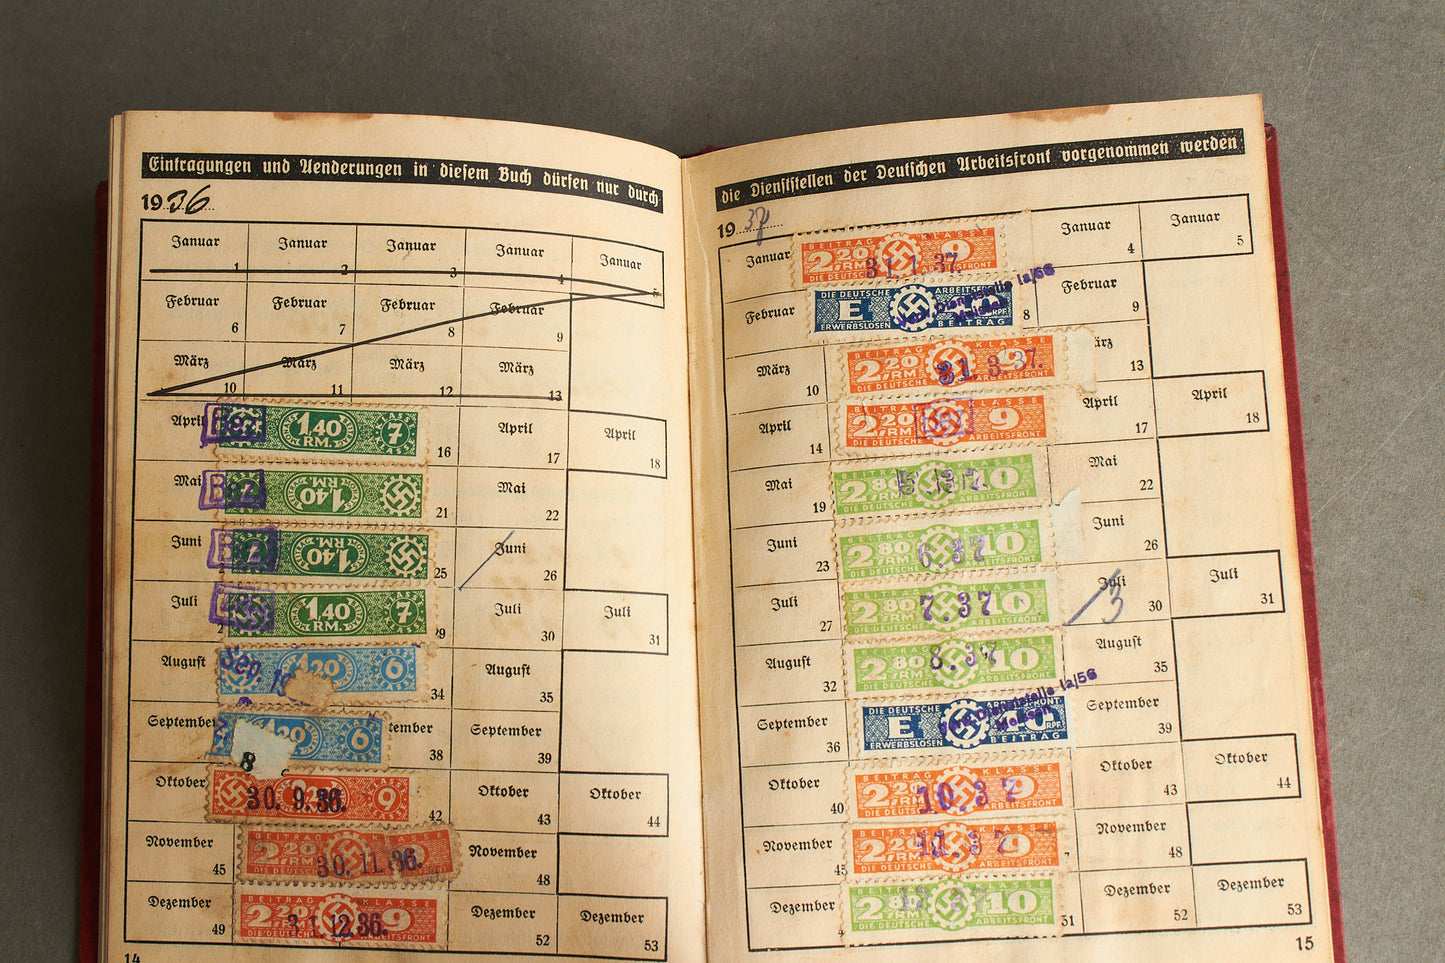 Eintragungen und Aenderungen in diesem Buch dürfen nur durch
1936
Januar Januar Januar Januar Januar
1 2 3 4 5
Februar Februar Februar Februar
6 7 8 9
März März März März
10 11 12 13
April 1,40 RM. 7 April April
16 17 18
Mai 1,40 Mai
21 22
Juni 1,40 Juni
25 26
Juli 1,40 RM. 7 Juli Juli
29 30 31
August 1,20 6 August
34 35
September 20 6 tember September
8 38 39
Oktober 30. 9. 36. 9 Oktober Oktober
42 43 44
November BEITRAG KLASSE 2,20 RM 30. 11. 36. November
45 DIE DEUTSCHE 48
Dezember BEITRAG KLASSE 2,20 RM 31. 12. 36. 9 Dezember Dezember
49 DIE DEUTSCHE ARBEITSFRONT 52 53
14
die Dienststellen der Deutschen Arbeitsfront vorgenommen werden
1937
Januar BEITRAG KLASSE 2,20 RM 9 31. 1. 37. Januar Januar
DIE DEUTSCHE ARBEITSFRONT 4 5
Februar DIE DEUTSCHE ARBEITSFRONT E Februar
ERWERBSLOSEN BEITRAG RPF. Dienststelle Ia/56 Meissen 8 9
März BEITRAG KLASSE 2,20 RM 9 31. 3. 37. ärz
10 DIE DEUTSCHE ARBEITSFRONT 13
April 2,20 RM 9 April April
14 DIE DEUTSCHE ARBEITSFRONT 17 18
Mai BEITRAG KLASSE 2,80 RM 10 Mai
19 DIE DEUTSCHE ARBEITSFRONT 22
Juni BEITRAG KLASSE 2,80 RM 10 6. 37 Juni
23 DIE DEUTSCHE ARBEITSFRONT 26
Juli BEITRAG KLASSE 2,80 RM 10 7. 37 Juli 3 Juli
27 DIE DEUTSCHE ARBEITSFRONT 30 31
August BEITRAG KLASSE 2,80 RM 10 8. 37 August
32 DIE DEUTSCHE ARBEITSFRONT 35
September E Dienststelle Ia/56 Meissen September
36 ERWERBSLOSEN BEITRAG RPF. 39
Oktober BEITRAG KLASSE 2,20 RM 9 10. 37 Oktober Oktober
40 DIE DEUTSCHE ARBEITSFRONT 43 44
November BEITRAG KLASSE 2,20 RM 9 11. 37 November
45 DIE DEUTSCHE ARBEITSFRONT 48
Dezember BEITRAG KLASSE 2,80 RM 10 12. 37 Dezember Dezember
DIE DEUTSCHE ARBEITSFRONT 51 52 53
15